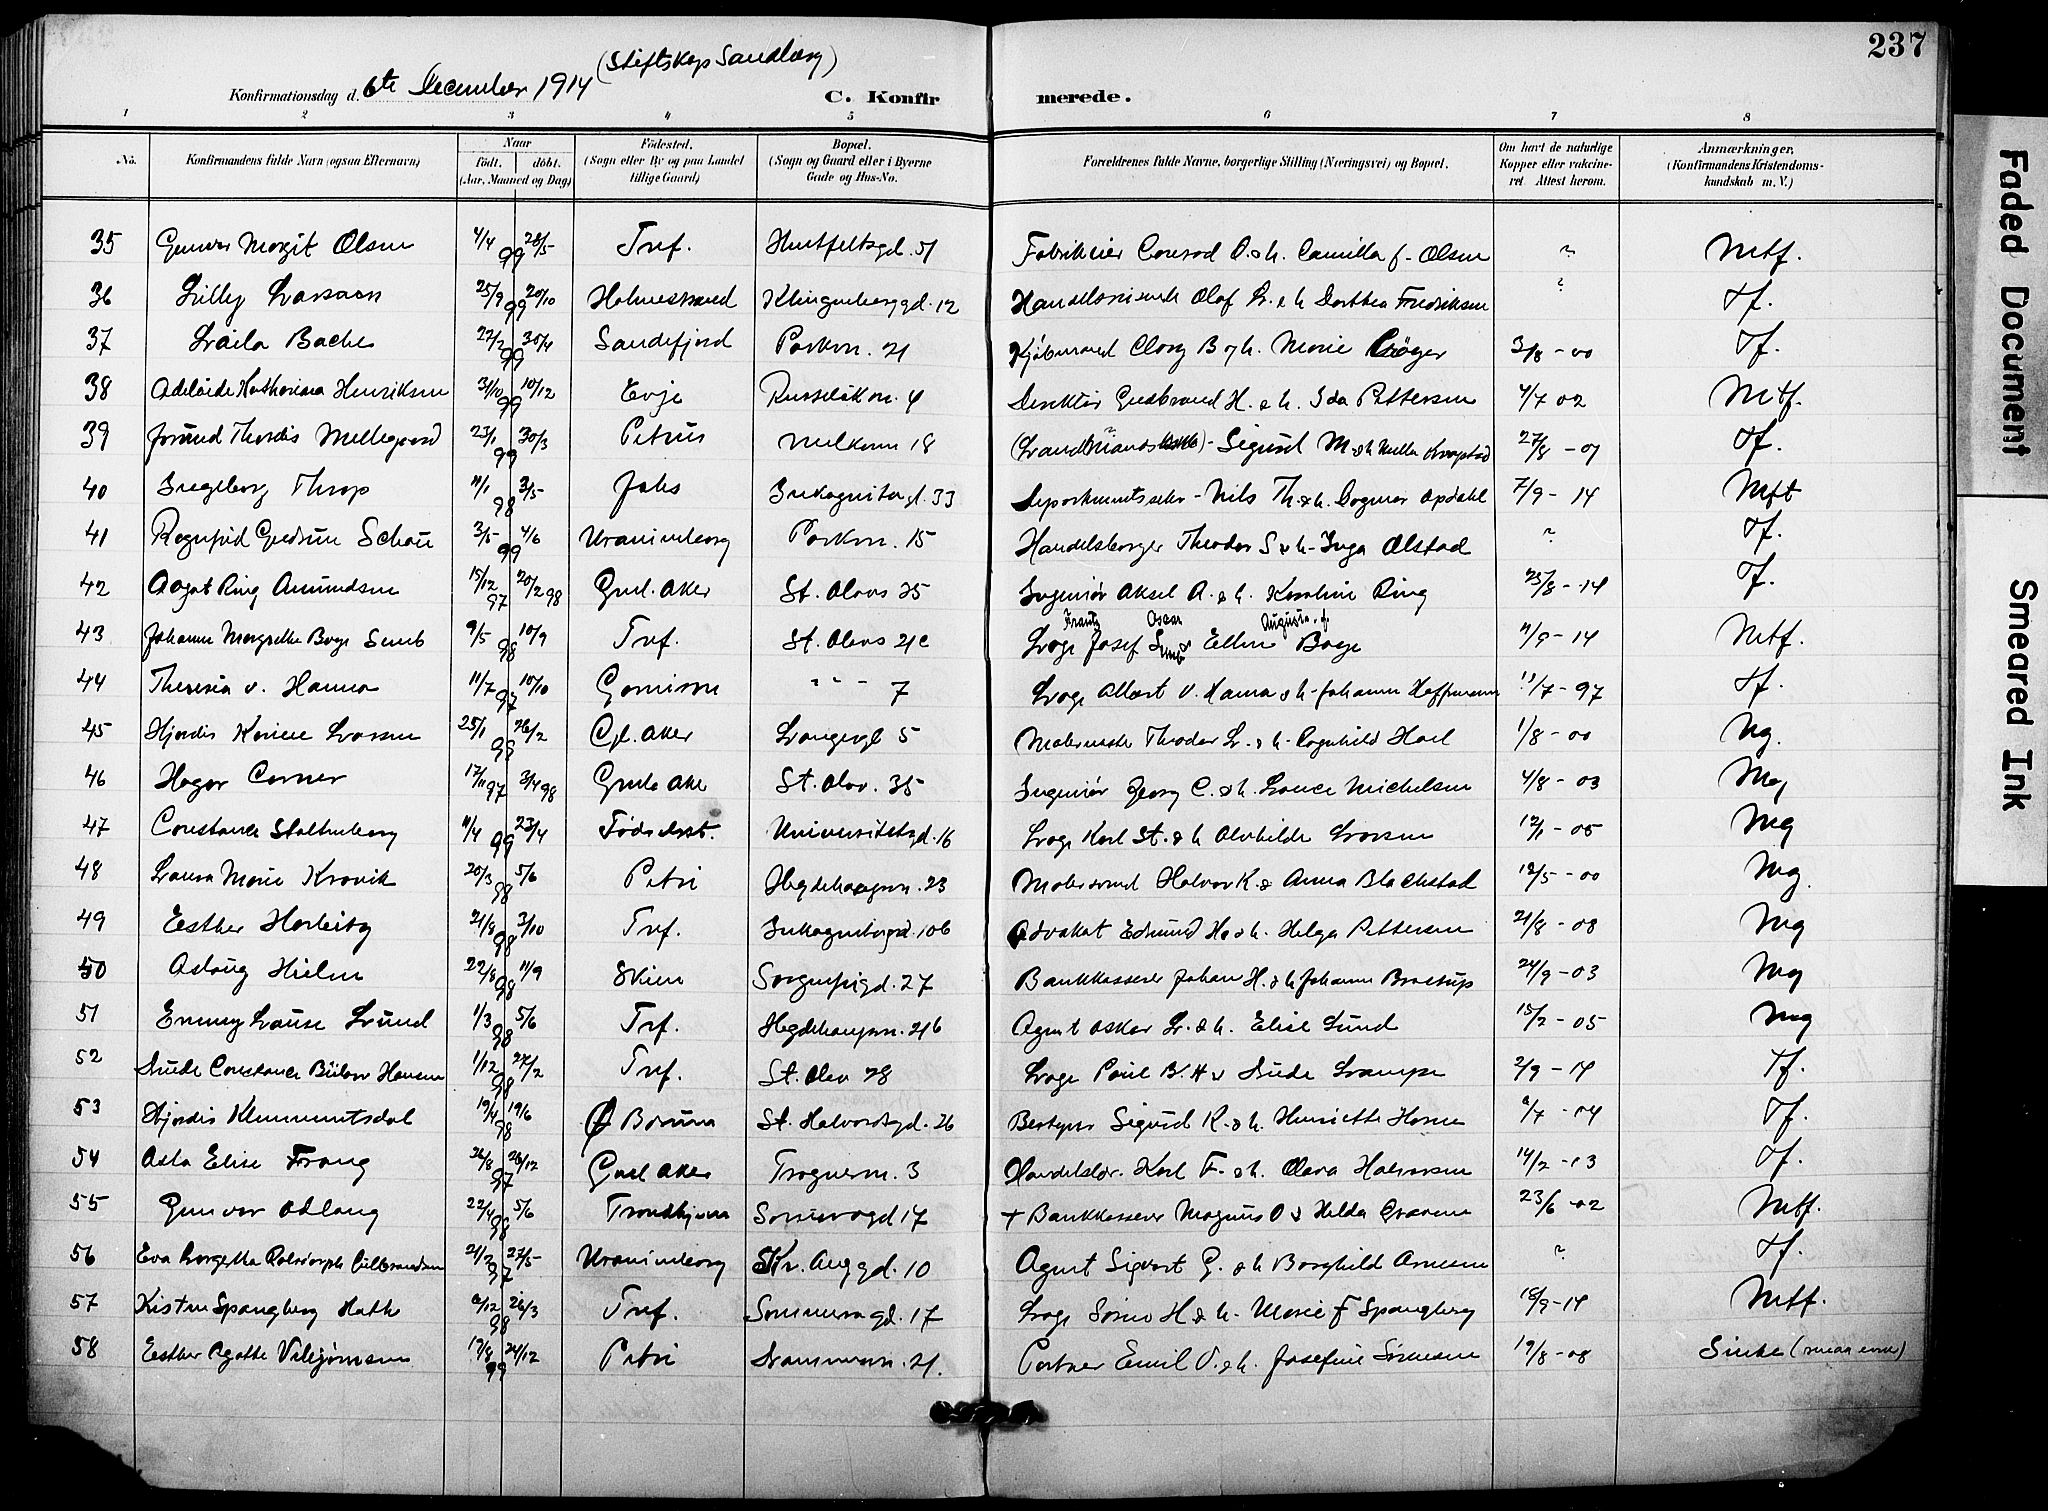 237
(Stiftskap Sandberg)
Konfirmationsdag d. 6te December 1914
C. Konfirmerede.
1 2 3 4 5 6 7 8
No. Konfirmandens fulde Navn (ogsaa Efternavn) Naar født. døbt. (Aar, Maaned og Dag) Fødested. (Sogn eller By og paa Landet tillige Gaard) Bopæl. (Sogn og Gaard eller i Byerne Gade og Hus-No. Forældrenes fulde Navne, borgerlige Stilling (Næringsvei) og Bopæl. Om havt de naturlige Kopper eller vaccineret. Attest herom. Anmærkninger, (Konfirmandens Kristendomskundskab m. V.)
35 Gunvor Margit Olsen 4/4 99 28/5 Tref. Huitfeltsgd. 51 Fabrikeier Conrad O. & h. Camilla f. Olsen ? Mtf.
36 Lilly Larsen 25/9 99 20/10 Holmestrand Klingenberggd. 12 Olaf L. & h. Dorthea Fredriksen ? Tf.
37 Laila Bache 22/2 99 30/4 Sandefjord Parkvn. 21 Kjøbmand B & h. Marie 3/8 - 00 Tf.
38 Adelaide Katharina Henriksen 31/10 99 10/12 Evje 4 Direktør Gudbrand H. & h. Ida Pettersen 4/7 02 Mtf.
39 Jorund Thordis Mellegaard 23/1 99 30/3 Petrus 18 Sigurd M & h 27/8 - 01 Tf.
40 Ingeborg Throp 11/1 98 3/5 Johs Inkognitogd. 33 Nils Th. & h. Dagmar Opdahl 7/9 - 14 Mft
41 Ragnfrid Gudrun Schou 3/5 99 4/6 Uranienborg Parkvn. 15 Handelsborger Theodor S & h. Inga Olstad ? Tf.
42 Aagot Ring Amundsen 15/12 97 20/2 98 Gml. Aker St. Olavs 35 Ingeniør Aksel A. & h. Karoline Ring 25/8 - 14 Tf.
43 Johanne Margrethe Boye 9/5 98 10/9 Tref. St. Olavs 21c Læge Frantz Josef Oscar & Ellen Augusta f. Boye 11/9 - 14 Mtf.
44 Theresia v. Hanno 11/7 97 10/10 Garnison " " " 7 Læge Albert v. Hanno & h. Johanne Hoffmann 11/7 - 97 Tf.
45 Hjordis Karine Larsen 25/1 98 26/2 Gl. Aker Langesgt 5 Malermester Theodor L. & h. Ragnhild Hoel 1/8 - 00 Ng.
46 Hagar Corner 17/11 97 3/4 98 Gamle Aker St. Olav. 35 Ingeniør Georg C. & h. Louise Michelsen 4/8 - 03 Mg
47 Constance Stoltenberg 11/4 99 23/4 Fødselsst. Universitetsgd. 16 Læge Karl St. & h Alvhilde Larsen 12/1 - 05 Mg
48 Laura Marie Kravik 20/3 98 5/6 Petri Hegdehaugsvn. 23 Halvor K. & Anna Blachstad 12/5 - 00 Mg.
49 Esther Harbitz 21/8 98 3/10 Tref. Inkognitogd. 10b Advokat Edmund H & h. Helga Pettersen 21/8 - 08 Mg
50 Aslaug Hielm 22/8 98 11/9 Skien Sorgenfrigd. 27 Bankkasserer Johan H. & h Johanne 24/9 - 03 Mg
51 Emmy Louise Lund 1/3 98 5/6 Tref. Hegdehaugsvn. 21b Agent Oskar L. & h. Elise Lund 15/2 - 05 Mg
52 Constance Bülow Hansen 1/12 98 27/2 Tref. St. Olav 28 Læge Paul B. H & Lampe 2/9 - 14 Tf.
53 Hjordis Klemmetsdal 19/4 98 19/6 St. Halvardsgd. 26 Bestyrer Sigurd K. & h. Henriette Horne /7 - 04 Tf.
54 Asta Elise Frang 26/8 97 26/12 Gml Aker Frognervn. 3 Karl F. & h. Clara Halvorsen 14/2 - 13 Tf.
55 Gunvor Odlaug 22/4 98 5/6 Trondhjem Sommerogd 17 + Bankkasserer Magnus O & Helda 23/6 - 02 Mtf.
56 Eva Gulbrandsen 21/2 97 27/5 Uranienborg Kr. Auggd. 10 Agent Sigvart G. & h Borghild Arnesen ? Tf.
57 Kirsten Spangberg Hoth 6/12 98 26/3 Tref. Sommerogd. 17 Læge Søren H & h. Marie F Spangberg 18/9 - 14 Mtf.
58 Esther Agathe 12/8 99 24/12 Petri Drammensvn. 21. Portner Emil V. & h. Josefine Sørensen 19/8 - 08 Sinke (
Faded Document
Smeared Ink